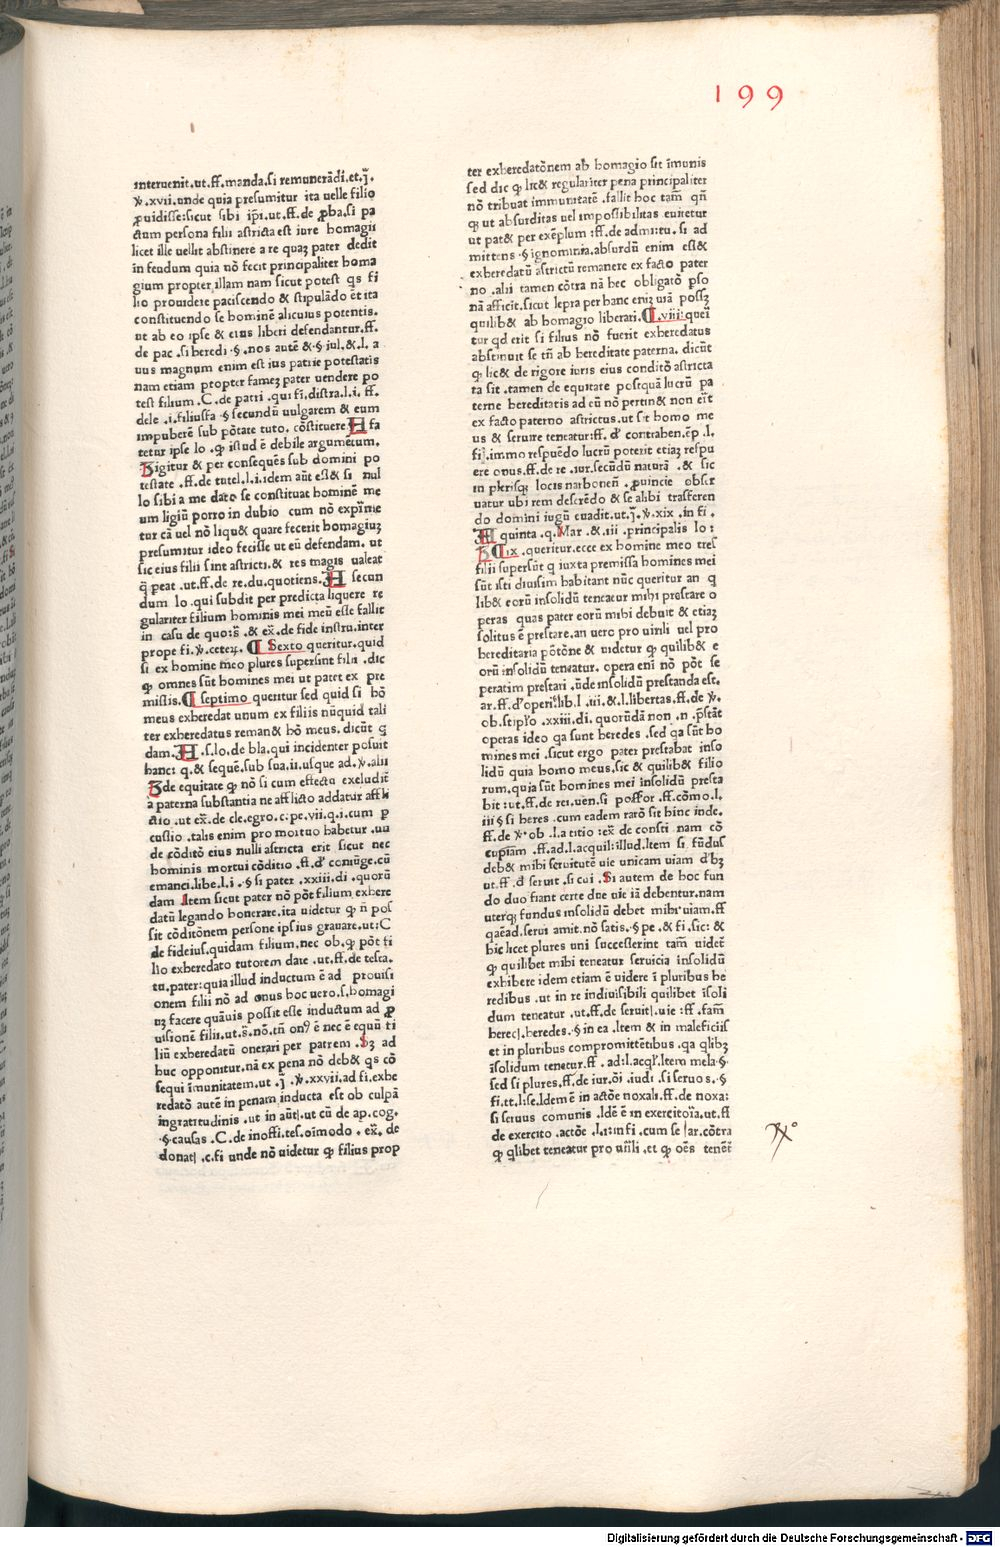 199
interuenit.ut.ff.manda.si remunerādi.et.j̄.
ꝟ.xvii.unde quia presumitur ita uelle filio
ꝓuidisse:sicut sibi ipi.ut.ff.de ꝓba.si pa
ctum persona filii astricta est iure homagii
licet ille uellit abstinere a re quaꝫ pater dedit
in feudum quia nō fecit principaliter homa
gium propter illam nam sicut potest qs fi
lio prouidere paciscendo & stipulādo ēt ita
constituendo se hominē alicuius potentis.
ut ab eo ipse & eius liberi defendantur.ff.
de pac.si heredi.§.nos autē &.§ iul.&.l. a
uus magnum enim est ius patrie potestatis
nam etiam propter fameꝫ pater uendere po
test filium.C.de patri.qui fi.distra.l.i.ff.
dele.i.filiusfa.§ secundū uulgarem & eum
impuberē sub pōtate tuto. cōstituere H fa
tetur ipse lo.ꝙ istud ē debile argumetum.
igitur & per consequēs sub domini po
testate.ff.de tutel.l.i.idem aūt est& si nul
lo sibi a me dato se constituat hominē me
um ligiū porro in dubio cum nō exp̄ime
tur cā uel nō liqu& quare fecerit homagiuꝫ
presumitur ideo fecisse ut eū defendam. ut
sic eius filii sint astricti.& res magis ualeat
q̄ peat.ut.ff.de re.du.quotiens. H secun
dum lo.qui subdit per predicta liquere re
gulariter filium hominis mei meū esse fallit
in casu de quo:s̄.& ex̄.de fide instru.inter
prope fi.ꝟ.ceteꝝ. ¶ Sexto queritur.quid
si ex homine meo plures supersint filii.dic
ꝙ omnes sūt homines mei ut patet ex pre
missis. ¶ septimo queritur sed quid si hō
meus exheredat unum ex filiis nūquid tali
ter exheredatus reman& hō meus. dicūt q
dam. H.s.lo.de bla.qui incidenter posuit
hanc: q.& sequē.sub sua.ii.usque ad.ꝟ.alii
de equitate ꝙ nō si cum effectu excludit̄
a paterna substantia ne afflicto addatur affli
ctio.ut ex̄.de cle.egro.c.pe.vii.q.i.cum ꝑ
cussio.talis enim pro mortuo habetur.un
de cōditō eius nulli astricta erit sicut nec
hominis mortui cōditio.ff.d' coniūge.cū
emanci.libe.l.i.§ si pater.xxiii.di.quorū
dam Item sicut pater nō pōt filium exhere
datū legando honerare.ita uidetur ꝙ n̄ pos
sit cōditōnem persone ipsius grauare.ut:C
de fideius.quidam filium.nec ob.ꝙ pōt fi
lio exheredato tutorem date.ut.ff.de testa.
tu.pater:quia illud inductum ē ad prouisi
onem filii nō ad onus hoc uero.s.homagi
uꝫ facere quāuis possit esse inductum ad ꝓ
uisionē filii.ut.s̄.nō.tn̄ onꝰ ē nec ē equū fi
liū exheredatū onerari per patrem.Sꝫ ad
huc opponitur.nā ex pena nō deb& qs cō
sequi īmunitatem.ut.j̄.ꝟ.xxvii.ad fi.exhe
redatō autē in penam inducta est ob culpā
ingratitudinis.ut in aūt.ut cū de ap.cog.
§.causas.C.de inoffi.tes.oīmodo.ex̄.de
donat.c.fi unde nō uidetur ꝙ filius prop
ter exheredatōnem ab homagio sit īmunis
sed dic ꝙ lic& regulariter pena principaliter
nō tribuat immunitatē.fallit hoc tam̄ qn̄
ꝗ ut absurditas uel impossibilitas euitetur
ut pat& per exēplum:ff.de admi:tu. si ad
mittens.§ ignominia.absurdū enim est&
exheredatū astrictū remanere ex facto pater
no.alii tamen cōtra nā hec obligatō pso
nā afficit.sicut lepra per hanc eniꝫ uiā possꝫ
quilib& ab homagio liberari. ¶.viii:quei
tur qd erit si filius nō fuerit exheredatus
abstinuit se tn̄ ab hereditate paterna. dicūt
ꝙ lic& de rigore iuris eius conditō astricta
ta sit.tamen de equitate postquā lucrū pa
terne hereditatis ad eū nō pertin& non erit̄
ex facto paterno astrictus.ut sit homo me
us & seruire teneatur:ff. d' contrahen.ēp.l.
fi.immo respuēdo lucrū poterit etiaꝫ respu
ere onus.ff.de re.iur.secūdū naturā.& sic
in plerisqꝫ locis narbonen̄.ꝓuincie obser
uatur ubi rem deserēdo & se alibi trāsferen
do domini iugū euadit.ut.j̄.ꝟ.xix.in fi.
H quinta.q.Mar &.iii.principalis lo:
¶ ix.queritur.ecce ex homine meo tres
filii supersūt q iuxta premissa homines mei
sūt isti diuisim habitant nūc queritur an q
lib& eorū insolidū teneatur mihi prestare o
peras quas pater eorū mihi debuit & etiaꝫ
solitus ē prestare.an uero pro uirili uel pro
hereditaria pōtōne & uidetur ꝙ quilib& e
orū insolidū teneatur. opera eni nō pōt se
peratim prestari.ūde insolidū prestanda est.
ar.ff.d'operi.lib.l.iii.&.l.libertas.ff.de ꝟ.
ob.stipl'o.xxiii.di.quorūdā non.n.p̄stāt
operas ideo qa sunt heredes.sed qa sūt ho
mines mei.sicut ergo pater prestabat inso
lidū quia homo meus.sic & quilib& filio
rum.quia sūt homines mei insolidū presta
bit:ut.ff.de rei.uen.si possor.ff.cōmo.l.
iii § si heres.cum eadem rarō sit hinc inde.
ff.de ꝟ.ob.l.a titio:ex̄ de consti nam cō
cupiam.ff.ad.l.acquil:illud.Item si fūdus
deb& mihi seruitutē uie unicam uiam d'hꝫ
ut.ff.d seruit.si cui.Si autem de hoc fun
do duo fiant certe due uie iā debentur.nam
uterqꝫ fundus insolidū debet mihi uiam.ff
qaēad.serui amit.nō satis.§ pe.& fi.sic: &
hic licet plures uni successerint tam̄ uidet̄
ꝙ quilibet mihi teneatur seruicia īnsolidū
exhibere idem etiam ē uidere ī pluribus he
redibus.ut in re indiuisibili quilibet īsoli
dum teneatur.ut.ff.de seruit.uie:ff.fam̄
herec.heredes.§ in ea.Item & in maleficiis
et in pluribus compromittētibus.qa qlibꝫ
īsolidum tenetur.ff.ad:l.acql'.Item mela.§.
sed si plures.ff.de iur.oī.iudi.si seruos.§.
fi.et.l:se.Idem ē in actōe noxali.ff.de noxa:
si seruus comunis.Idē ē in exercitoīa.ut.ff
de exercito.actōe.l.i:in fi.cum se ar.cōtra
ꝙ qlibet teneatur pro uirili.et ꝙ oēs tenēt̄
Digitalisierung gefördert durch die Deutsche Forschungsgemeinschaft - DFG